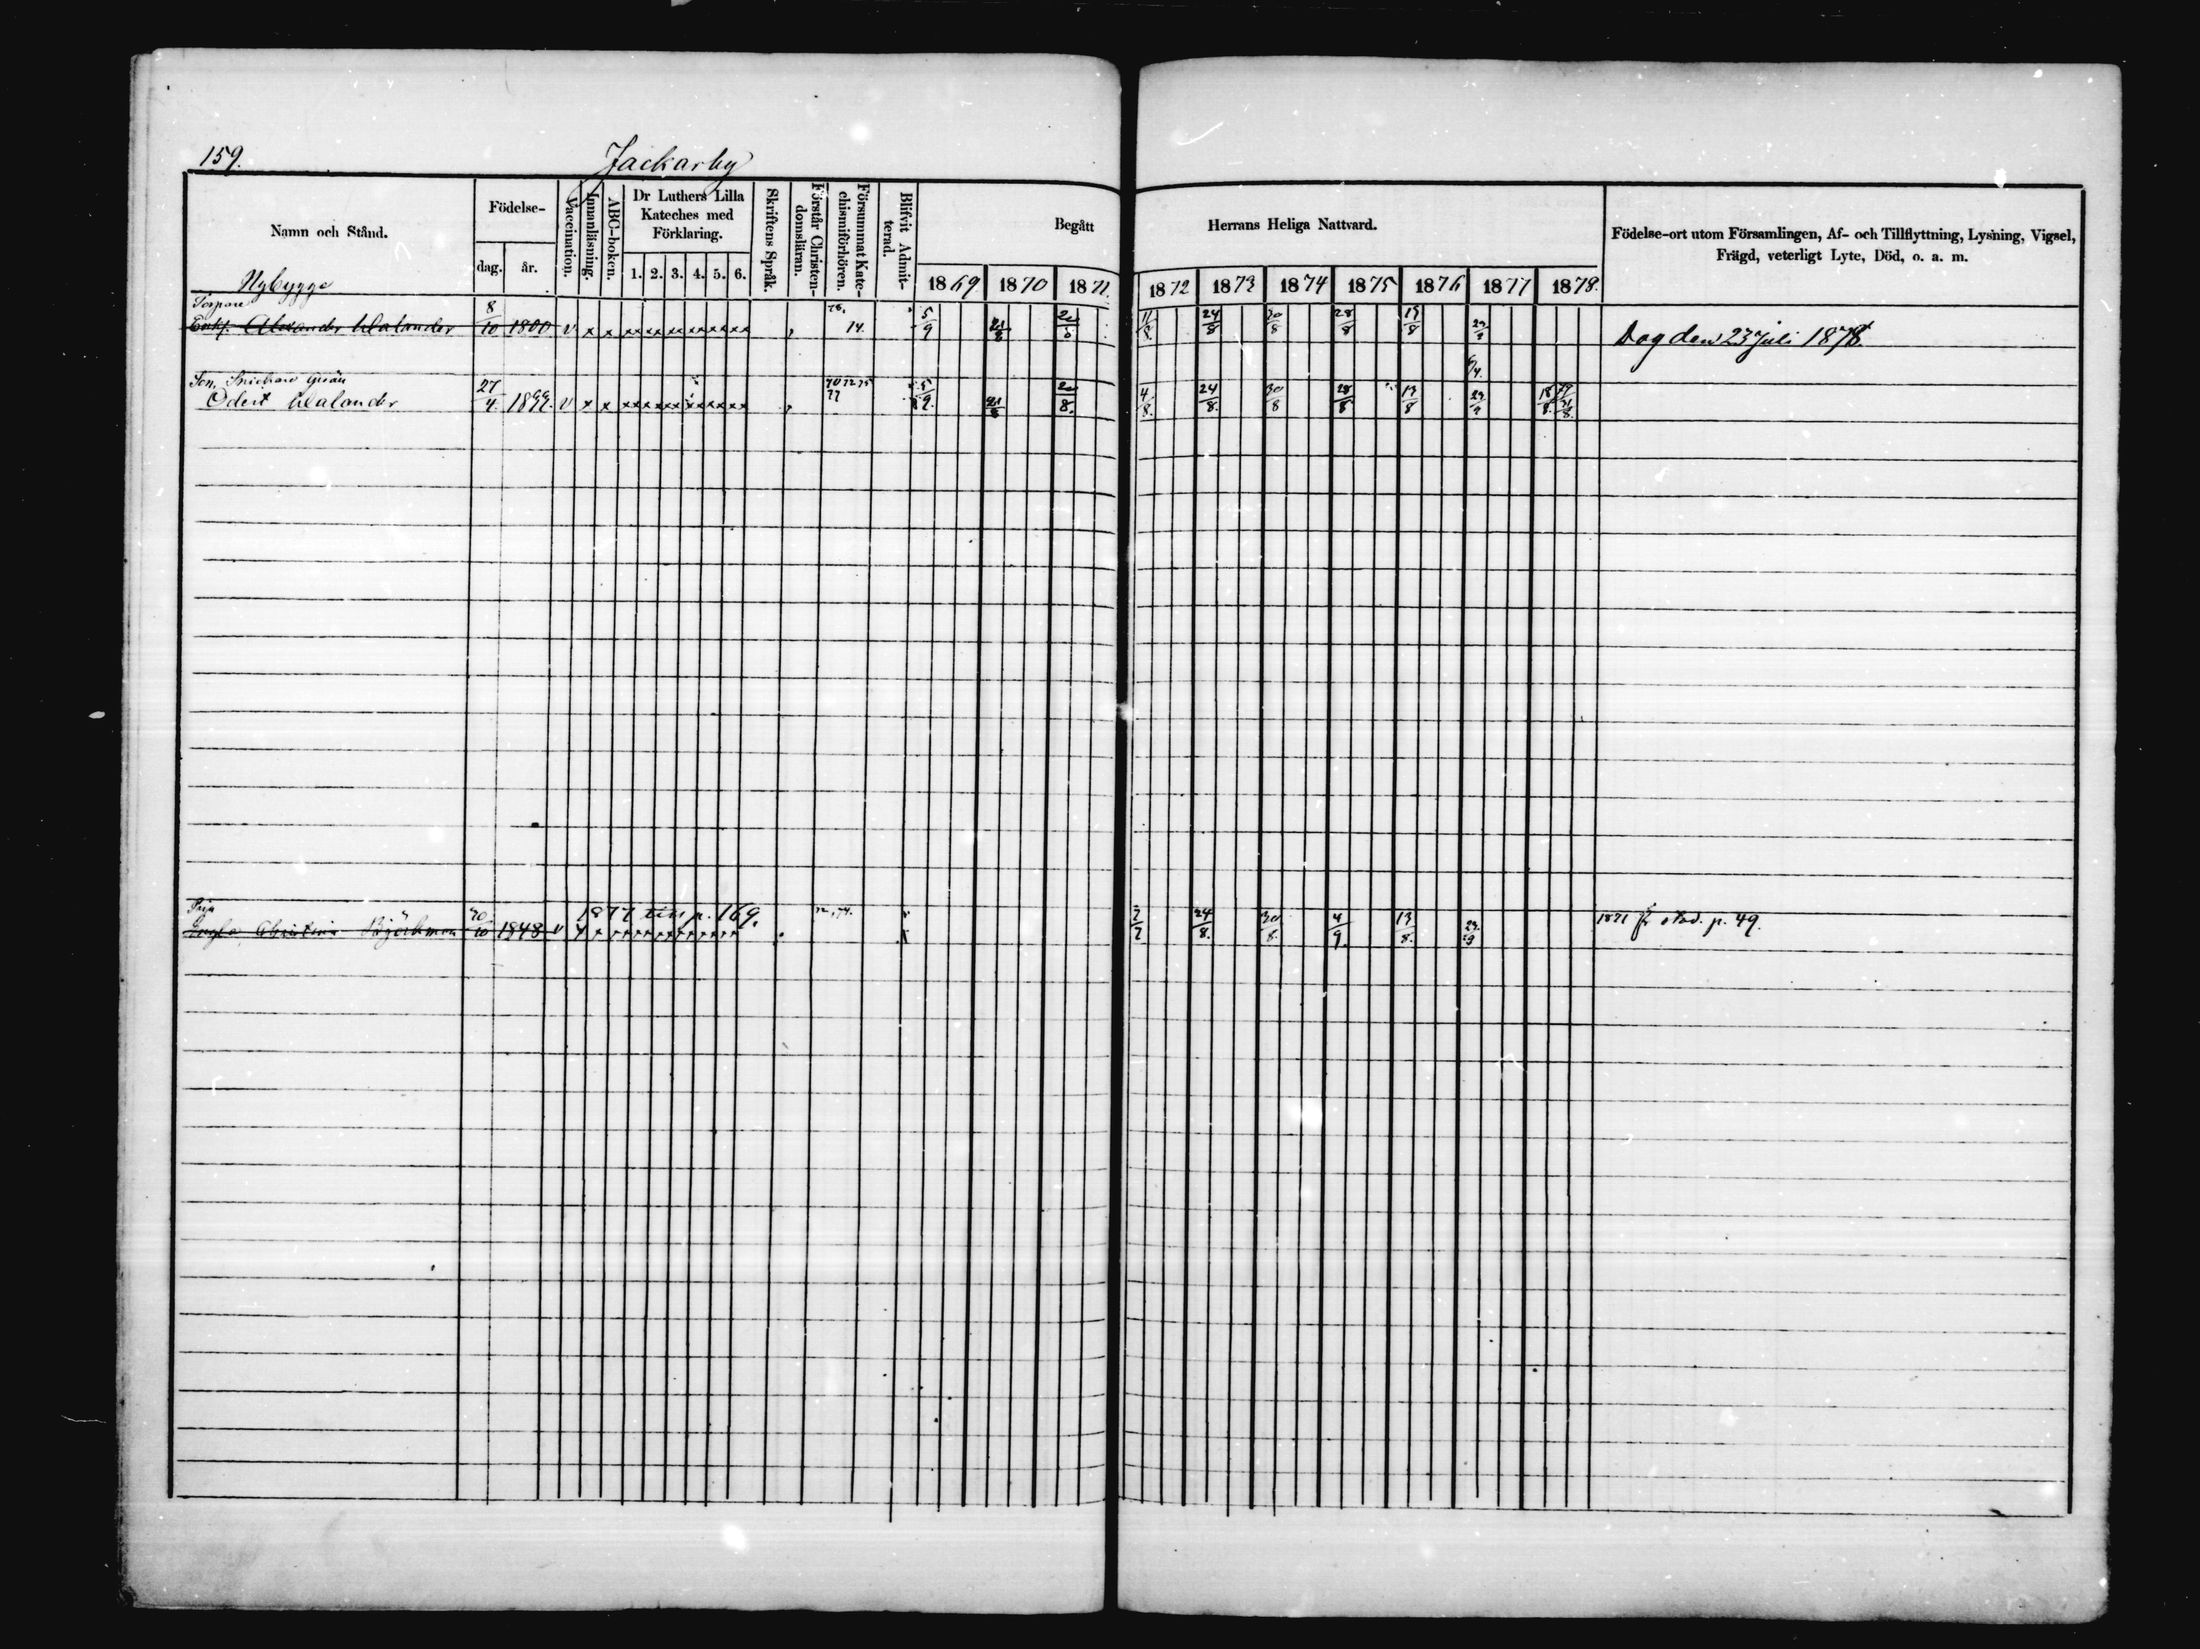 159.
Jackarby
Namn och Stånd.
Födelse-
dag.
år.
Vaccination.
Innanläsning.
ABC-boken.
Dr Luthers Lilla
Kateches med
Förklaring.
1. 2. 3. 4. 5. 6.
Skriftens Språk.
Förstår Christen-
domsläran.
Försummat Kate-
chismiförhören.
Blifvit Admit-
terad.
Begått
Herrans Heliga Nattvard.
1869 1870 1871. 1872 1873 1874 1875 1876 1877 1878.
Födelse-ort utom Församlingen, Af- och Tillflyttning, Lysning, Vigsel,
Frägd, veterligt Lyte, Död, o. a. m.
Nybygge
Torpare
Enkl. Alexander Walander 8/10 1800 v x x xx xx xx xx xx xx 14. 5/9 21/8 11/8. 24/8 30/8 28/8 13/8 Dog den 23 juli 1878.
Son, Snickare
Odert Walander 27/4. v x x xx xx xx xx xx xx 77 5/9. 21/8 20/8. 4/8. 24/8. 30/8 28/8 13/8
Pig. 1877 p. 169. 72, 74.
Christina Björkman 1848 v x x xx xx xx xx xx xx 24/8. 30/8. 4/9. 13/8. 23/9 1871 p. 49.